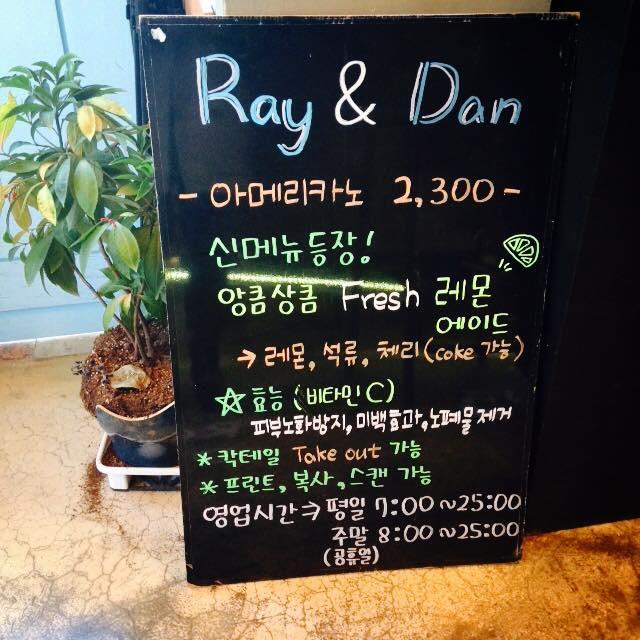 Ray & Dan
- 아메리카노 2,300 -
신메뉴등장!
앙큼상큼 Fresh 레몬
에이드
→ 레몬, 석류, 체리 (coke 가능)
☆효능 (비타민C)
피부노화방지, 미백효과, 노폐물제거
* 칵테일 Take out 가능
* 프린트, 복사, 스캔 가능
영업시간 ⇒ 평일 7:00 ~25:00
주말 8:00 ~25:00
(공휴일)